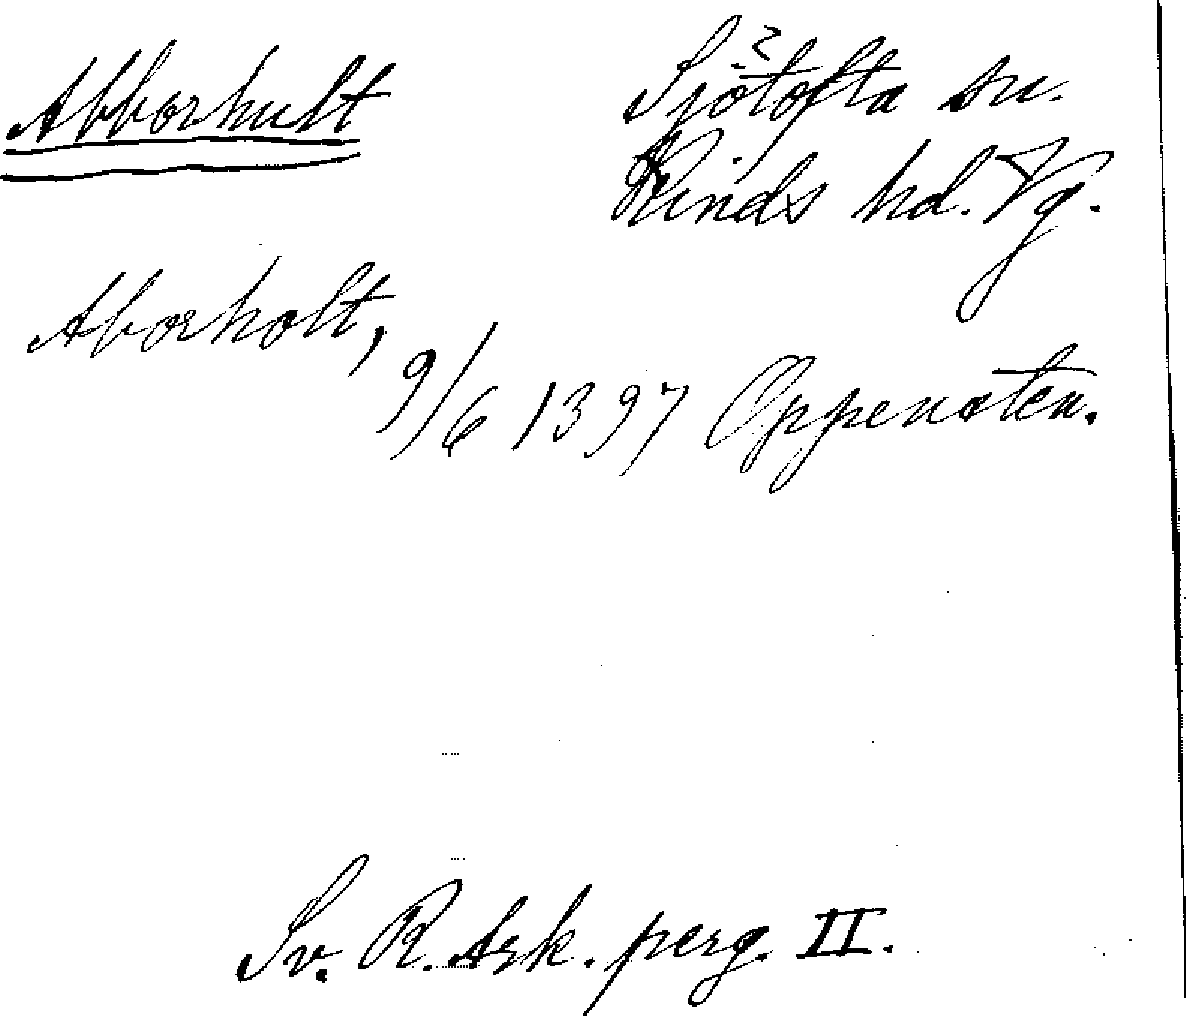 Abborhult
Sjötofta sn.
Kinds hd. Vg.
Aborholt,
9/6 1397 Oppensten.
Sv. R. Ark. perg. II.